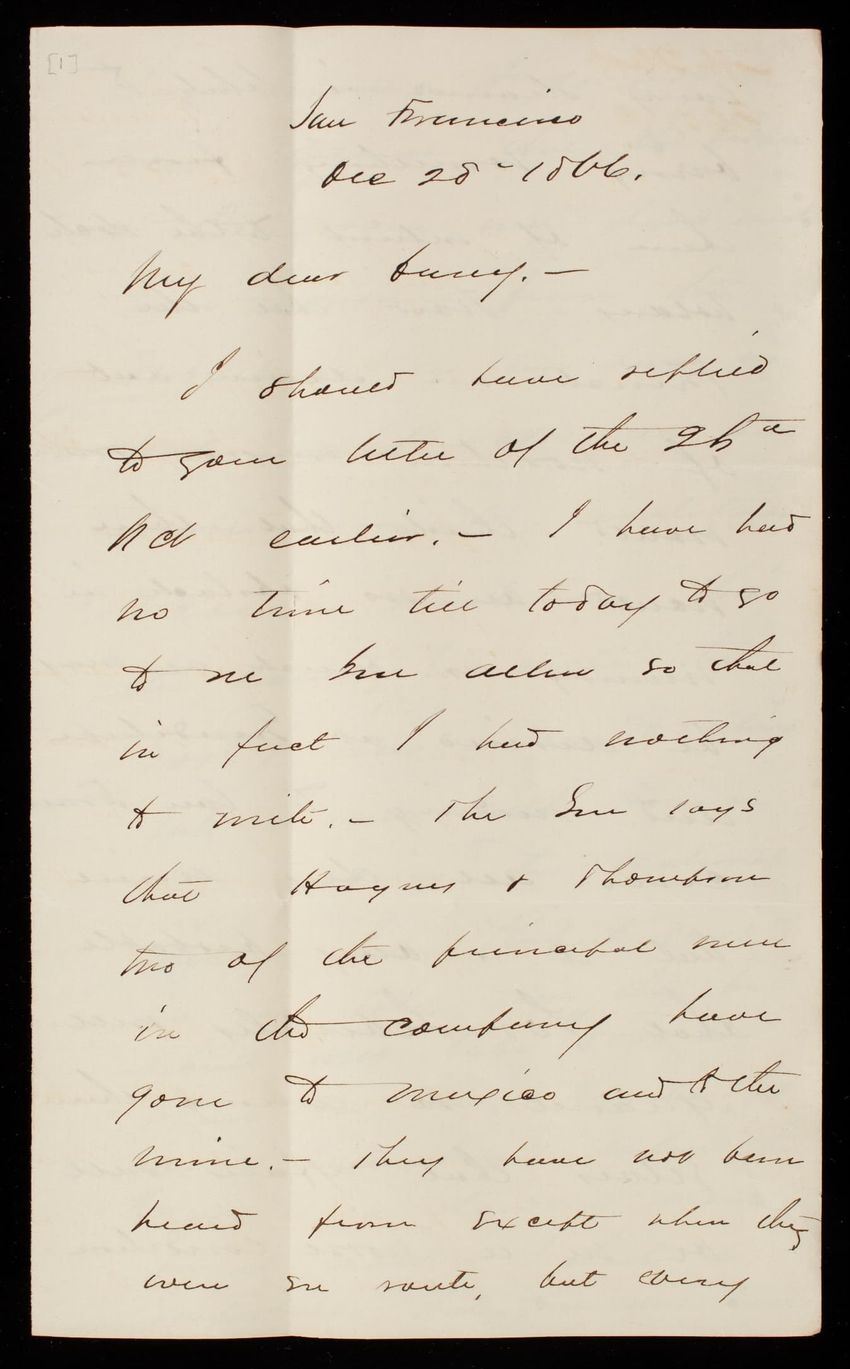 [1]
San Francisco
Dec 28 - 1866.
My dear Casey. -
I should have replied
to your letter of the 26th
Oct earlier. - I have had
no time till today to go
to see Gen Allen so that
in fact I had nothing
to write. - The Gen says
that Haynes & Thompson
two of the principal men
in the company have
gone to Mexico and to the
mine. - They have not been
heard from except when they
were en route, but every